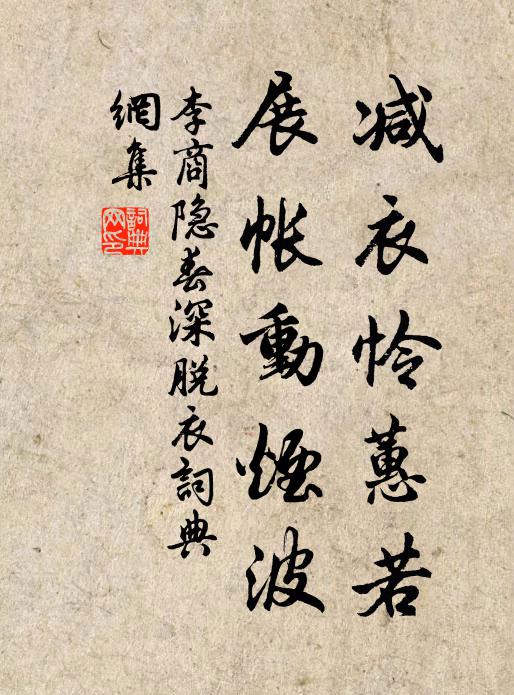 减衣怜蕙若
展帐動煙波
李商隐春深脱衣詞典
網集
詞典网印